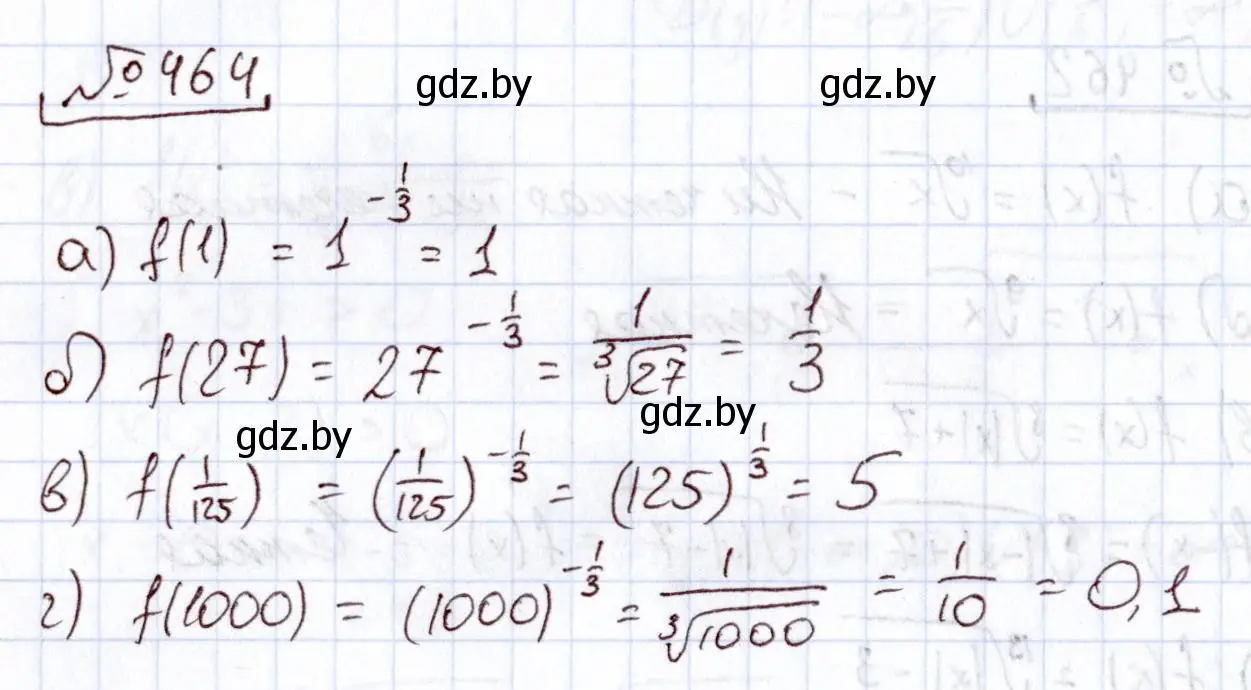 № 464
gdz.by gdz.by
а) f(1) = 1^{-1/3} = 1
б) f(27) = 27^{-1/3} = 1/∛27 = 1/3
gdz.by gdz.by
в) f(1/125) = (1/125)^{-1/3} = (125)^{1/3} = 5
г) f(1000) = (1000)^{-1/3} = 1/∛1000 = 1/10 = 0,1